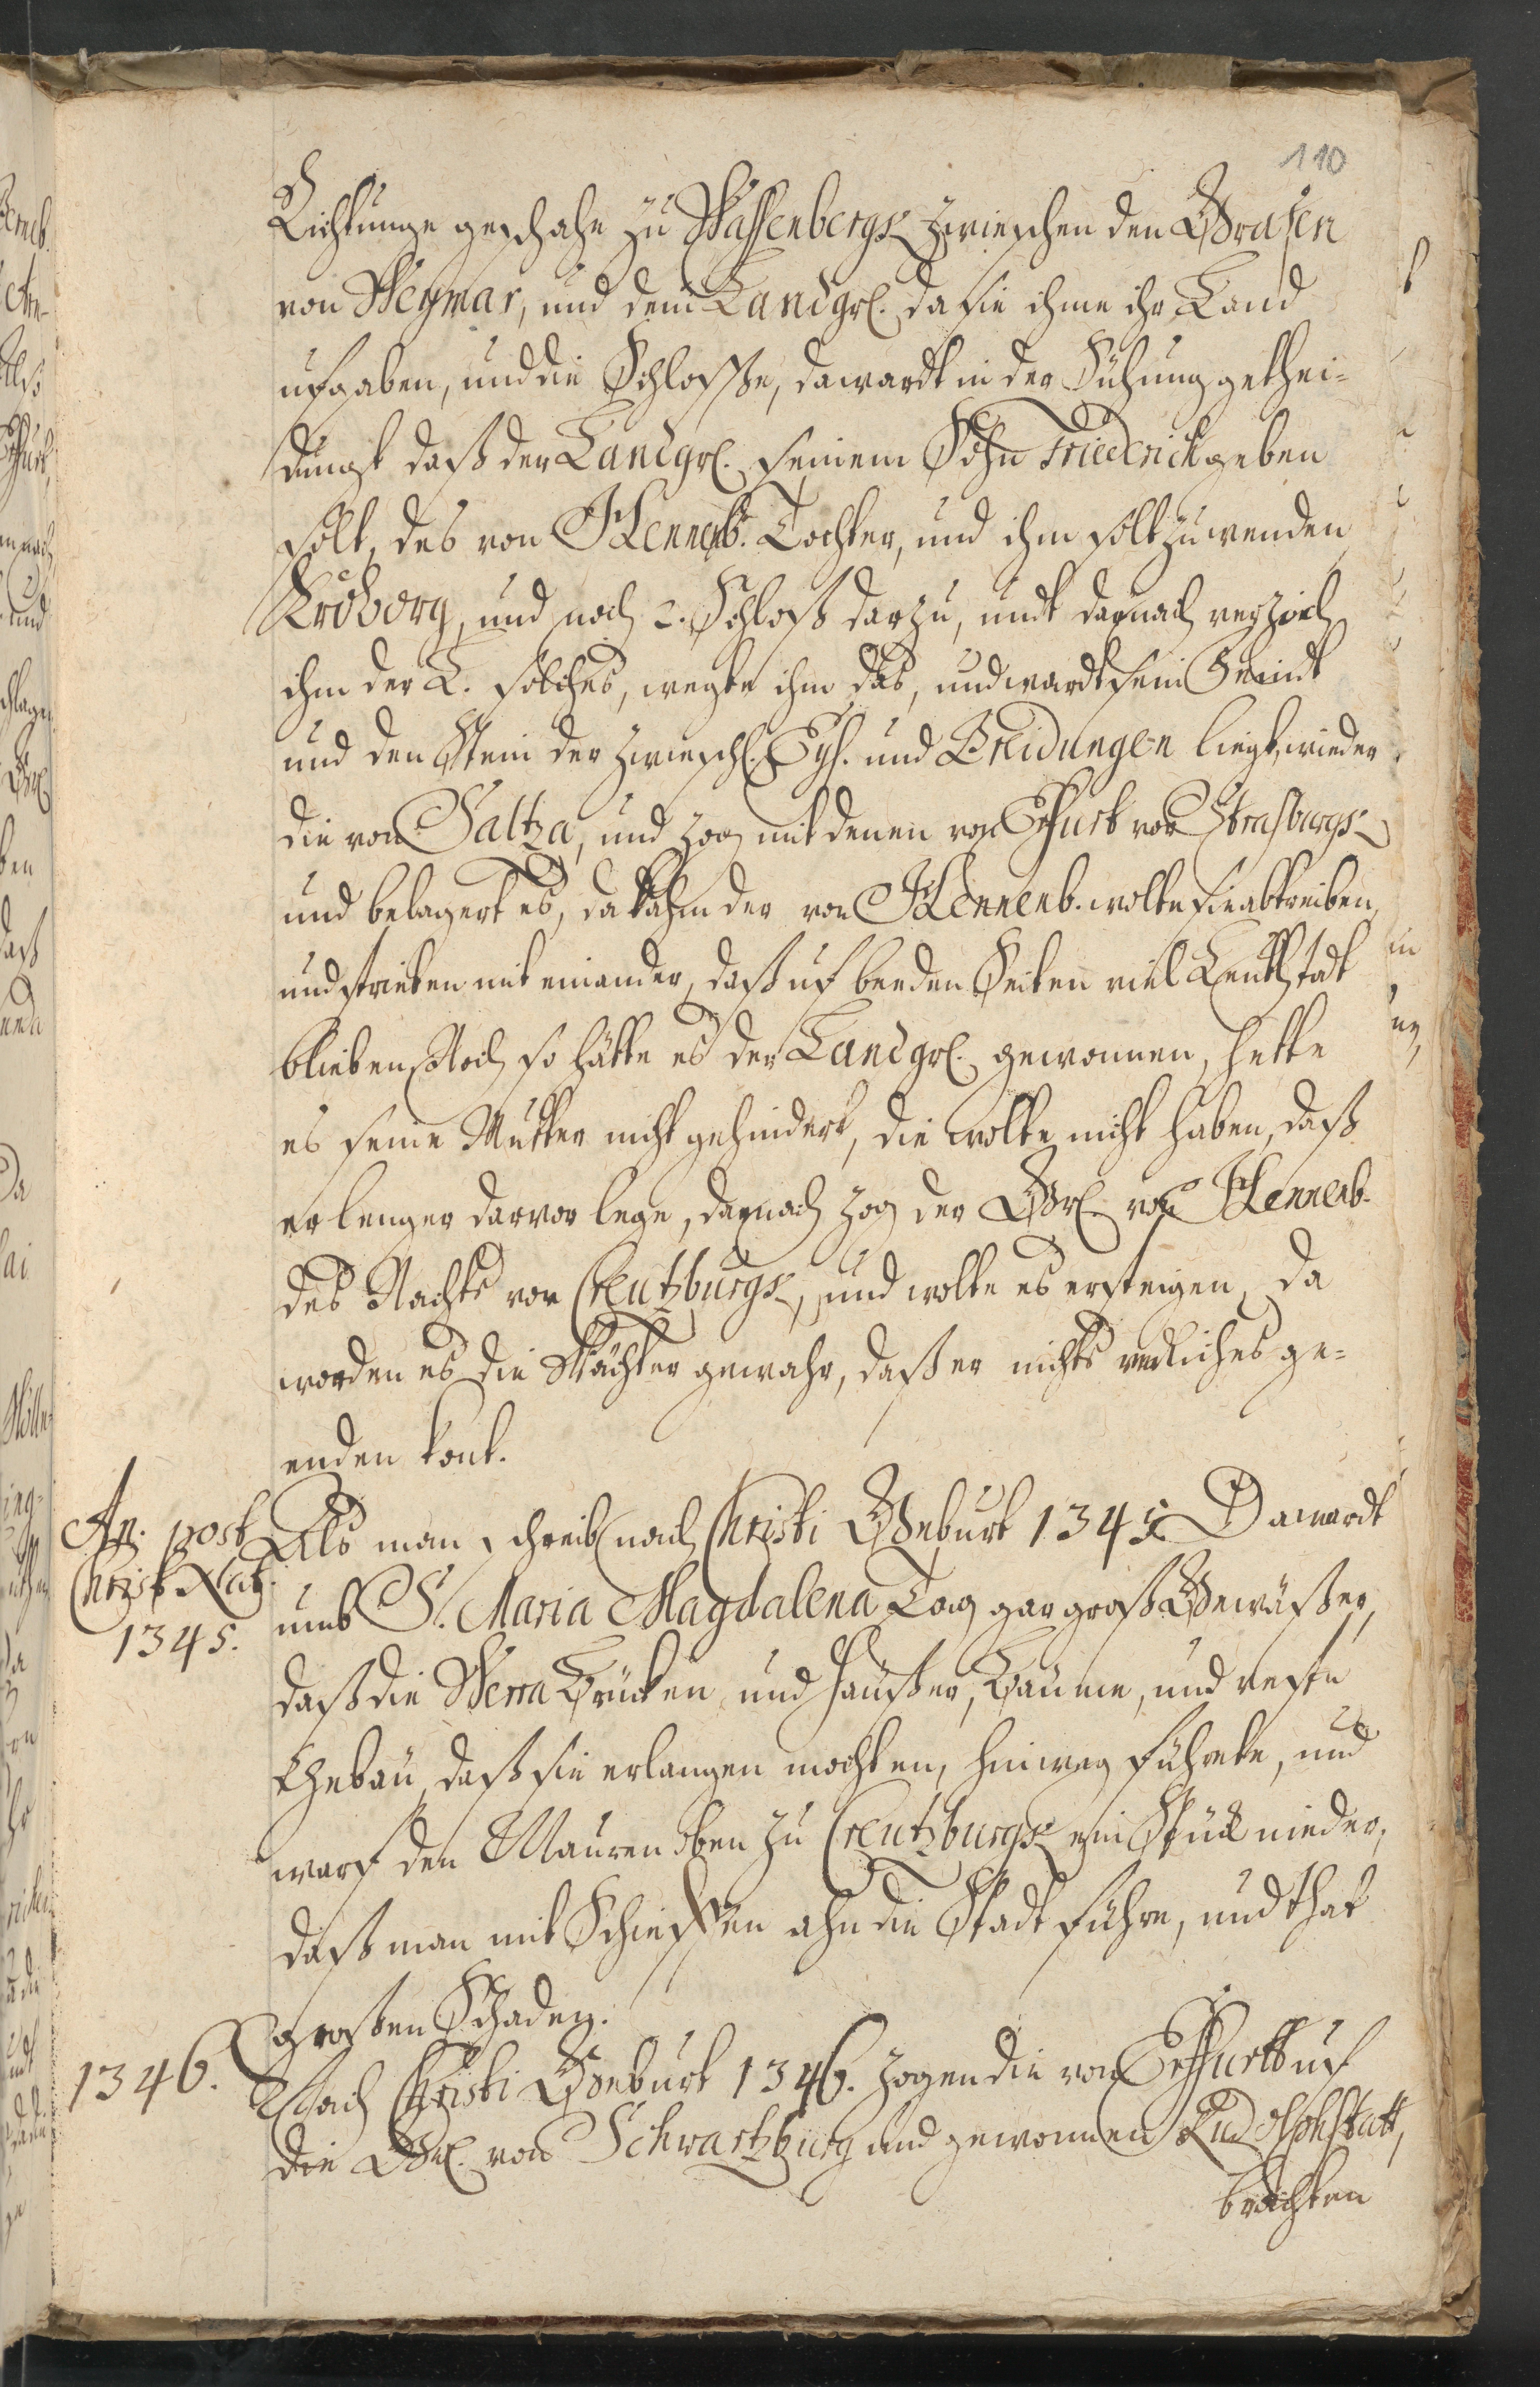 110
Richtunge geschahe zu Wassenbergk zwieschen den Grafen
von Weymar, und dem Landgrl. da sie ihme ihr Land
ufgaben, und die Schlosse, da wardt in der Sühung gethei-
dungt daß der Landgrl. seinem Sohn Friedrich geben
solt, des von Hennenb. Tochter, und ihm solt zu wenden
Kroborg, und noch 2. Schloß darzu, undt darnach verzoch
ihm der L. solches, wegte ihm das, und wardt sein Feindt
und den Stein der zwiesch. Eys. und Breidungen liegt, wieder
die von Saltza, und zog mit denen von Erfurt vor Strasburgk
und belagert es, da kahm der von Hennenb. wolte sie abtreiben,
und striten mit einander, daß uf beeden Seiten viel Leuth todt
blieben, Noch so hätte es der Landgrl. gewonnen, hette
es seine Mutter nicht gehindert, die wolte nicht haben, daß
er lenger darvor lege, darnach zog der Grl. von Hennenb.
des Nachts vor Creutzburgk, und wolte es ersteigen, da
worden es die Wächter gewahr, daß er nichts redliches ge-
enden kont.
An. post
Christ Nat.
1345.
Als man schreib nach Christi Geburt 1345 Da wardt
umb S. Maria Magdalena Tag gar groß Gewäßer,
daß die Werra Brücken und Häußer, Bäume, und veste
Gebäu, daß sie erlangen mochten, hinweg führete, und
warf den Mauren oben zu Creutzburgk ein Stück nieder,
daß man mit Schieffen ahn die Stadt führe, und that
großen Schaden.
1346.
Nach Christi Geburt 1346. zogen die von Erffurtt uf
die Grl. von Schwartzburg und gewonnen Rudolphstatt,
brachten